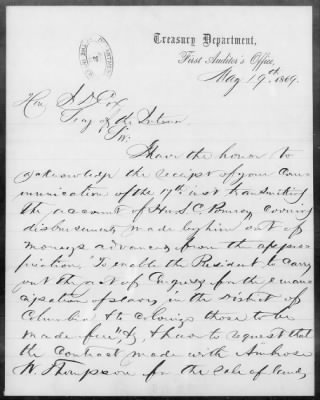 Treasury Department,
First Auditor's Office,
May 19th, 1869.
Hon J D Cox,
Secy of the Interior
Sir
I have the honor to
acknowledge the receipt of your com-
munication of the 17th inst transmitting
the account of Hon S. C. Pomeroy covering
disbursements made by him out of
moneys advanced from the appro-
priation, "To enable the President to carry
out the act of Congress for the eman-
cipation of slaves in the District of
Columbia & to colonize those to be
made free", &c, & have to request that
the Contract made with Ambrose
W Thompson for the sale of land,